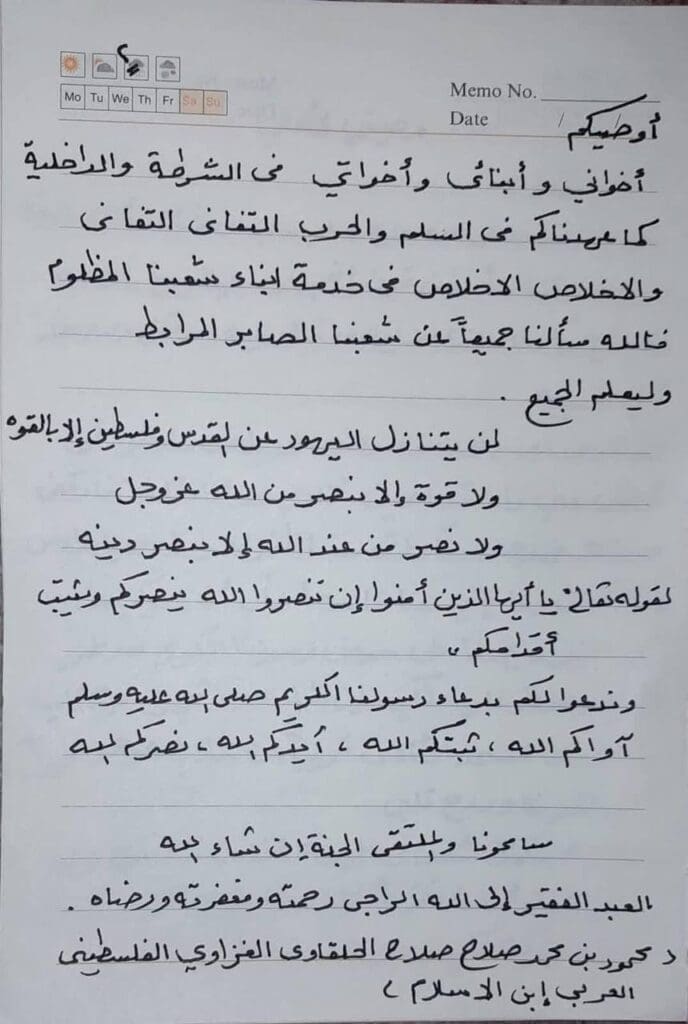 Mo Tu We Th Fr Sa Su
Memo No.
Date / /
أوصيكم
أخواني وأبنائى وأخواتي فى الشرطة والداخلية
كما عهدناكم فى السلم والحرب التفانى التفانى
والاخلاص الاخلاص فى خدمة ابناء شعبنا المظلوم
فالله سألنا جميعاً عن شعبنا الصابر المرابط
وليعلم الجميع .
لن يتنازل اليهود عن القدس وفلسطين إلا بالقوه
ولا قوة إلا بنصر من الله عز وجل
ولا نصر من عند الله إلا بنصر دينه
لقوله تعالى " يا أيها الذين أمنوا إن تنصروا الله ينصركم ويثبت
أقدامكم "
وندعوا لكم بدعاء رسولنا الكريم صلى الله عليه وسلم
آواكم الله ، ثبتكم الله ، أيدكم الله ، نصركم الله
سامحونا والملتقى الجنة إن شاء الله
العبد الفقير إلى الله الراجى رحمته ومغفرته ورضاه .
د محمود بن محمد صلاح صلاح الحلقاوى الغزاوي الفلسطينى
العربي إبن الاسلام )